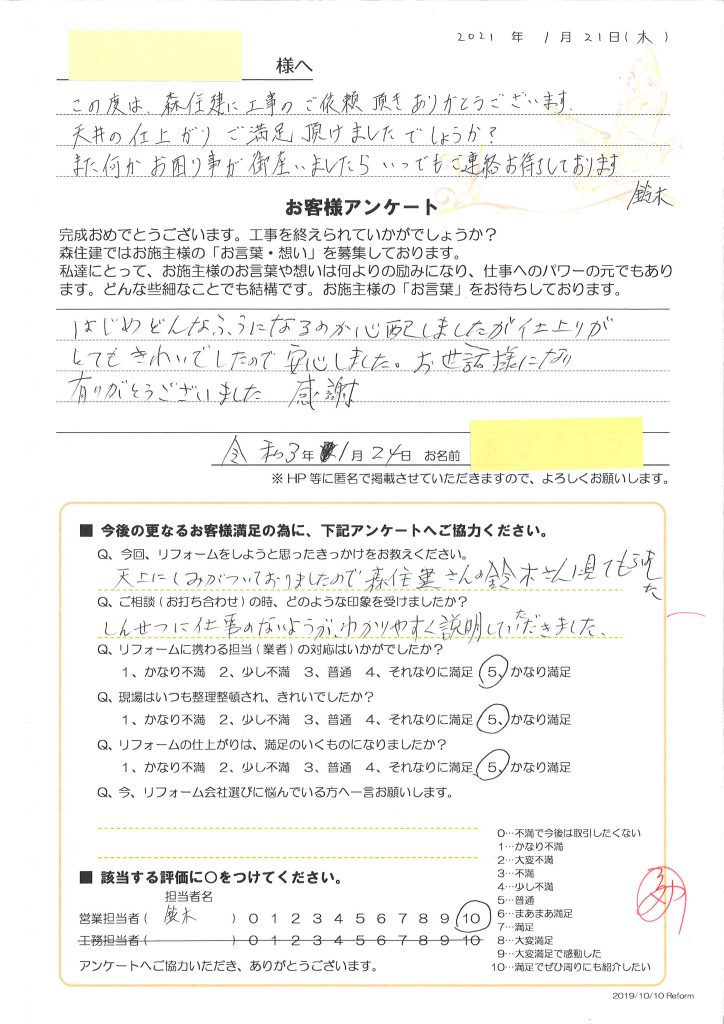 2021 年 1月 21日(木)
様へ
この度は、森住建に工事のご依頼頂きありがとうございます.
天井の仕上がりご満足頂けましたでしょうか?
また何かお困り事が御座いましたらいつでもご連絡お待ちしております
鈴木
お客様アンケート
完成おめでとうございます。工事を終えられていかがでしょうか?
森住建ではお施主様の「お言葉・想い」を募集しております。
私達にとって、お施主様のお言葉や想いは何よりの励みになり、仕事へのパワーの元でもあり
ます。どんな些細なことでも結構です。お施主様の「お言葉」をお待ちしております。
はじめどんなふうになるのか心配しましたが仕上りが
とてもきれいでしたので安心しました。お世話様になり
有りがとうございました 感謝
令和3年 1月24日 お名前
※HP等に匿名で掲載させていただきますので、よろしくお願いします。
■ 今後の更なるお客様満足の為に、下記アンケートへご協力ください。
Q、今回、リフォームをしようと思ったきっかけをお教えください。
天上にしみがついておりましたので森住建さんの鈴木さんに見てもらいました
Q、ご相談(お打ち合わせ)の時、どのような印象を受けましたか?
しんせつに仕事のないようが、わかりやすく説明していただきました、
Q、リフォームに携わる担当(業者)の対応はいかがでしたか?
1、かなり不満 2、少し不満 3、普通 4、それなりに満足 5、かなり満足
Q、現場はいつも整理整頓され、きれいでしたか?
1、かなり不満 2、少し不満 3、普通 4、それなりに満足 5、かなり満足
Q、リフォームの仕上がりは、満足のいくものになりましたか?
1、かなり不満 2、少し不満 3、普通 4、それなりに満足 5、かなり満足
Q、今、リフォーム会社選びに悩んでいる方へ一言お願いします。
0…不満で今後は取引したくない
1…かなり不満
2…大変不満
3…不満
4…少し不満
5…普通
6…まあまあ満足
7…満足
8…大変満足
9…大変満足で感動した
10…満足でぜひ周りにも紹介したい
■ 該当する評価に〇をつけてください。
担当者名
営業担当者( 鈴木 ) 0 1 2 3 4 5 6 7 8 9 10
工務担当者( ) 0 1 2 3 4 5 6 7 8 9 10
アンケートへご協力いただき、ありがとうございます。
2019/10/10 Reform